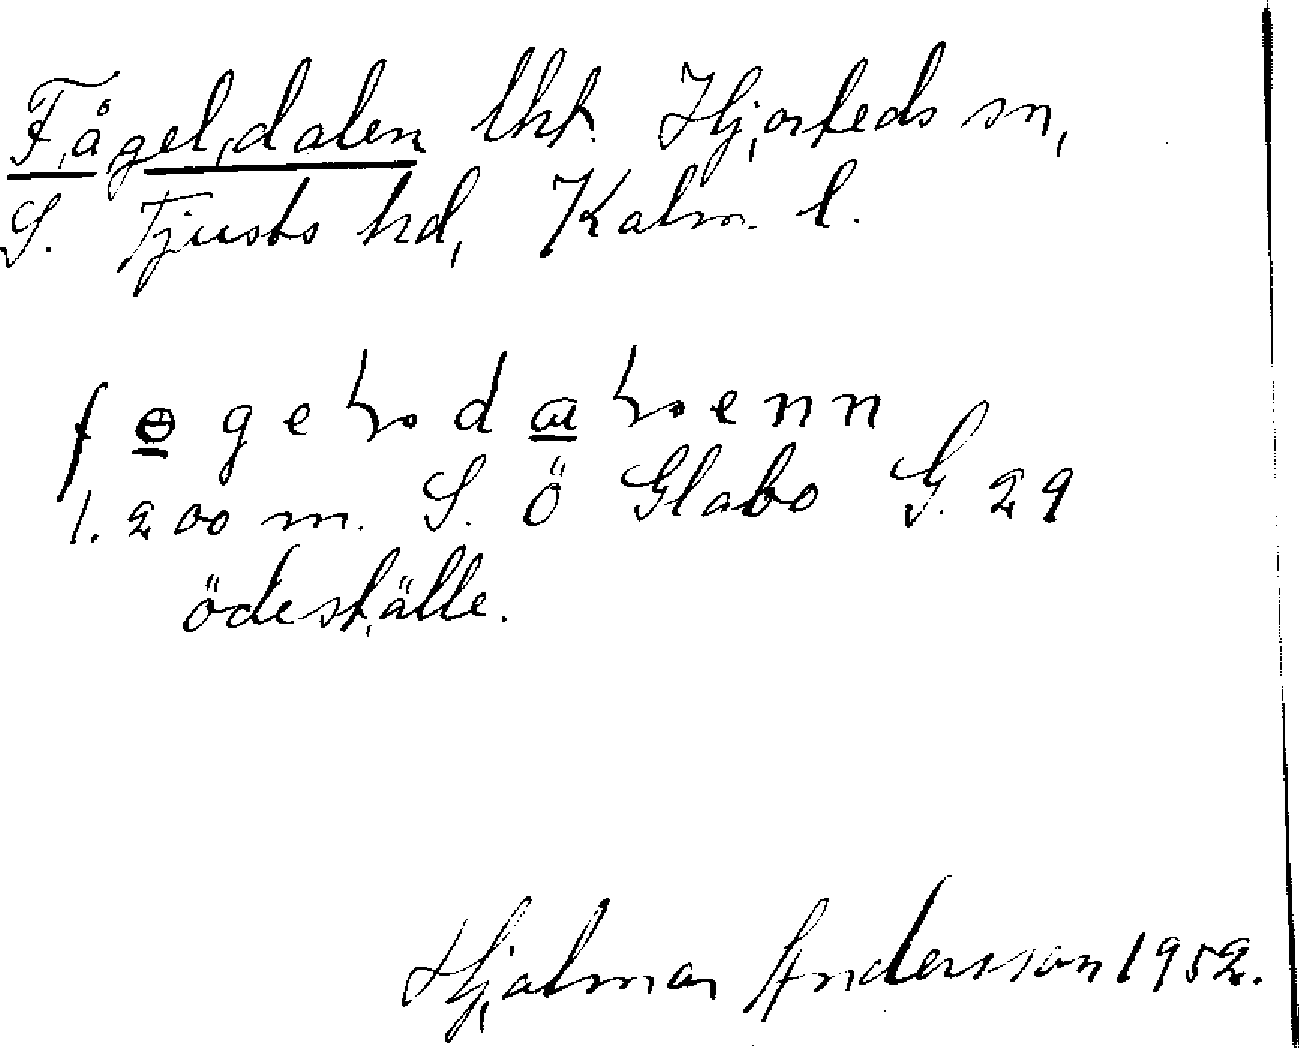 Fågeldalen lht. Hjorteds sn,
S. Tjusts hd, Kalm. l.
fɵgeɫdaɫenn
1.200 m. S. Ö Glabo G. 29
ödeställe.
Hjalmar Andersson 1952.